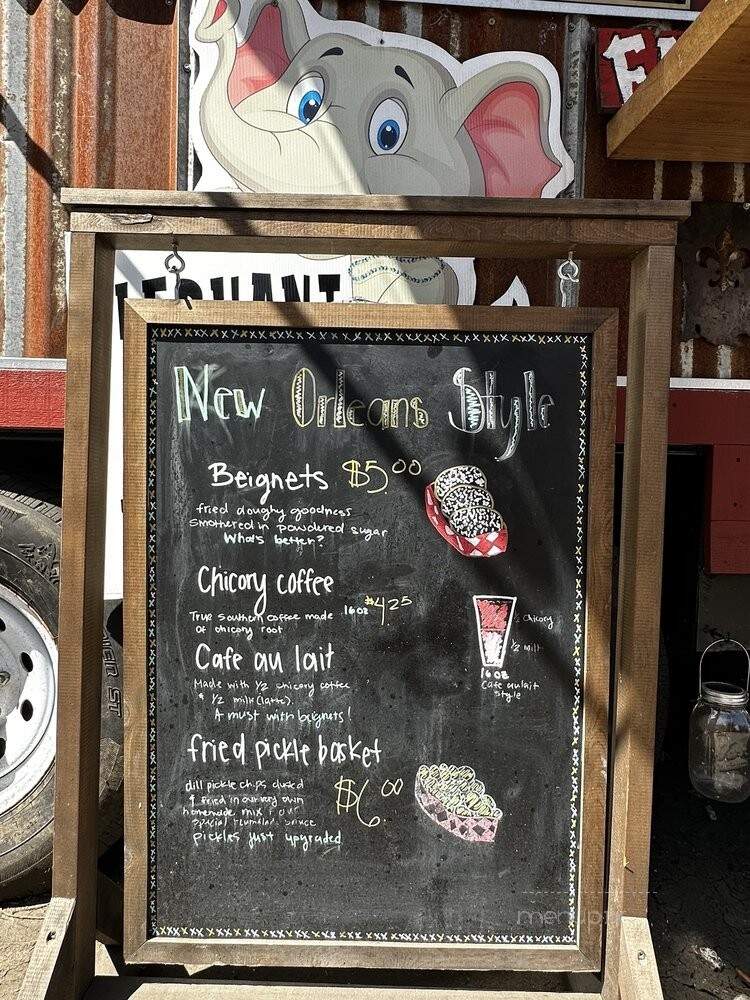 New Orleans Style
Beignets $5.00
fried doughy goodness
smothered in powdured sugar
What's better?
Chicory coffee
True Southern coffee made 16oz $4.25
of chicory root
½ chicory
½ milk
16oz
Cafe au lait
style
Cafe au lait
Made with ½ chicory coffee
& ½ milk (latte).
A must with beignets!
fried pickle basket
dill pickle chips
& fried in our very own $6.00
homemade mix & our
special sauce
pickles just upgraded